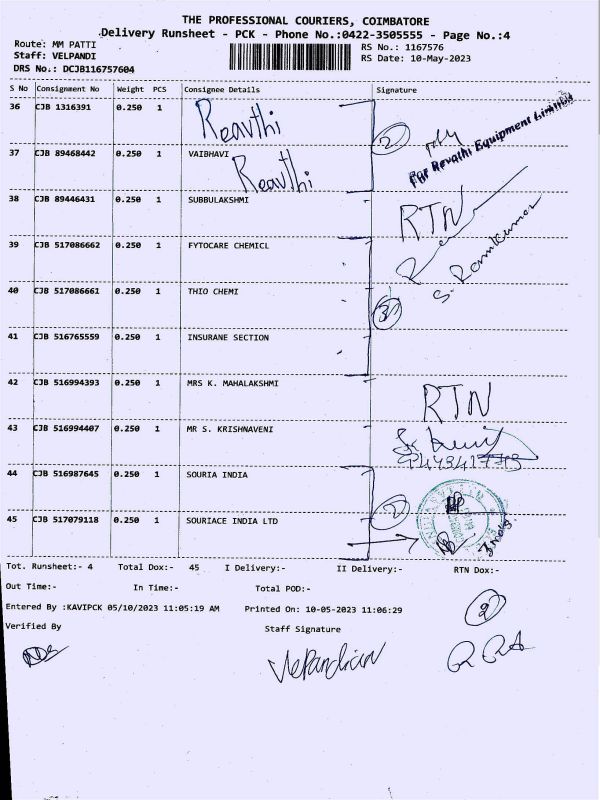 THE PROFESSIONAL COURIERS, COIMBATORE
Delivery Runsheet - PCK - Phone No.:0422-3505555 - Page No.:4
Route: MM PATTI
Staff: VELPANDI
DRS No.: DCJB116757604
RS No.: 1167576
RS Date: 10-May-2023
S No Consignment No Weight PCS Consignee Details Signature
36 CJB 1316391 0.250 1 Revthi
2
For Revathi Equipment Limited
37 CJB 89468442 0.250 1 VAIBHAVI
Revthi
38 CJB 89446431 0.250 1 SUBBULAKSHMI RTN
39 CJB 517086662 0.250 1 FYTOCARE CHEMICL
S. Ramkumar
40 CJB 517086661 0.250 1 THIO CHEMI
3
41 CJB 516765559 0.250 1 INSURANE SECTION
42 CJB 516994393 0.250 1 MRS K. MAHALAKSHMI RTN
43 CJB 516994407 0.250 1 MR S. KRISHNAVENI
44 CJB 516987645 0.250 1 SOURIA INDIA
2
45 CJB 517079118 0.250 1 SOURIACE INDIA LTD
Tot. Runsheet:- 4 Total Dox:- 45 I Delivery:- II Delivery:- RTN Dox:-
Out Time:- In Time:- Total POD:-
Entered By :KAVIPCK 05/10/2023 11:05:19 AM Printed On: 10-05-2023 11:06:29
2
Verified By Staff Signature
VelPandian